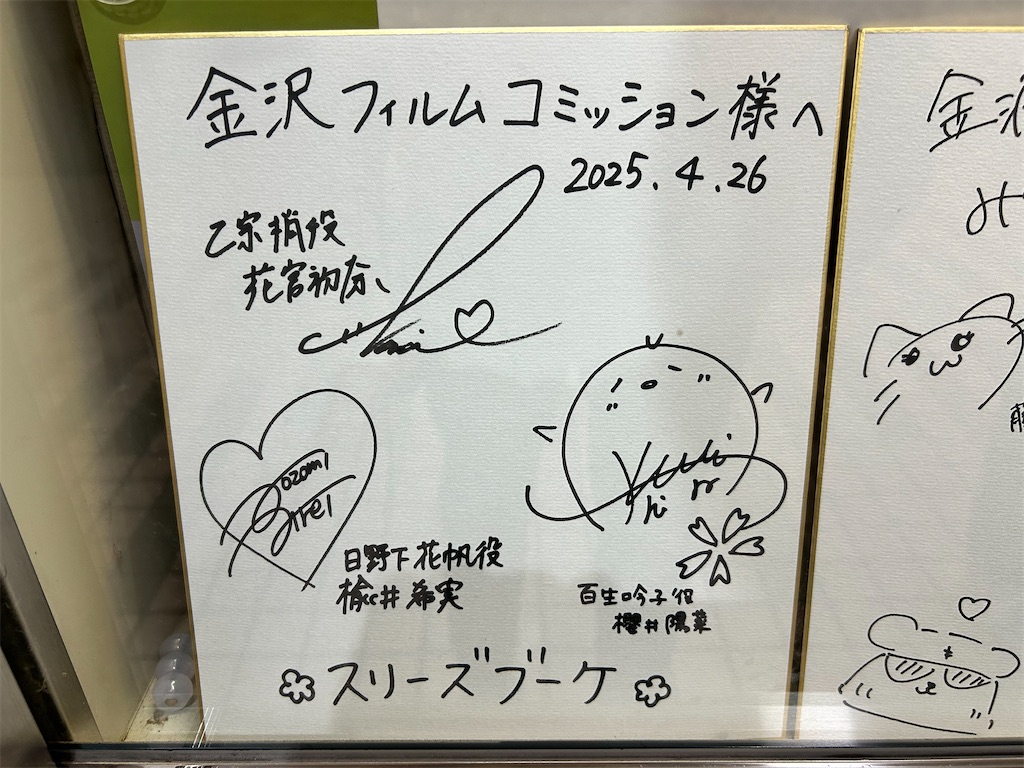 金沢フィルムコミッション様へ
2025.4.26
乙宗梢役
花宮初奈
Nozomi
Nirei
日野下花帆役
楡井希実
百生吟子役
櫻井陽菜
スリーズブーケ
金沢
み